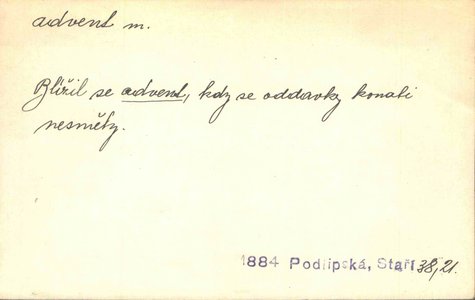 advent m.
Blížil se advent, kdy se oddavky konati
nesměly.
1884 Podlipská, Staří 38,21.